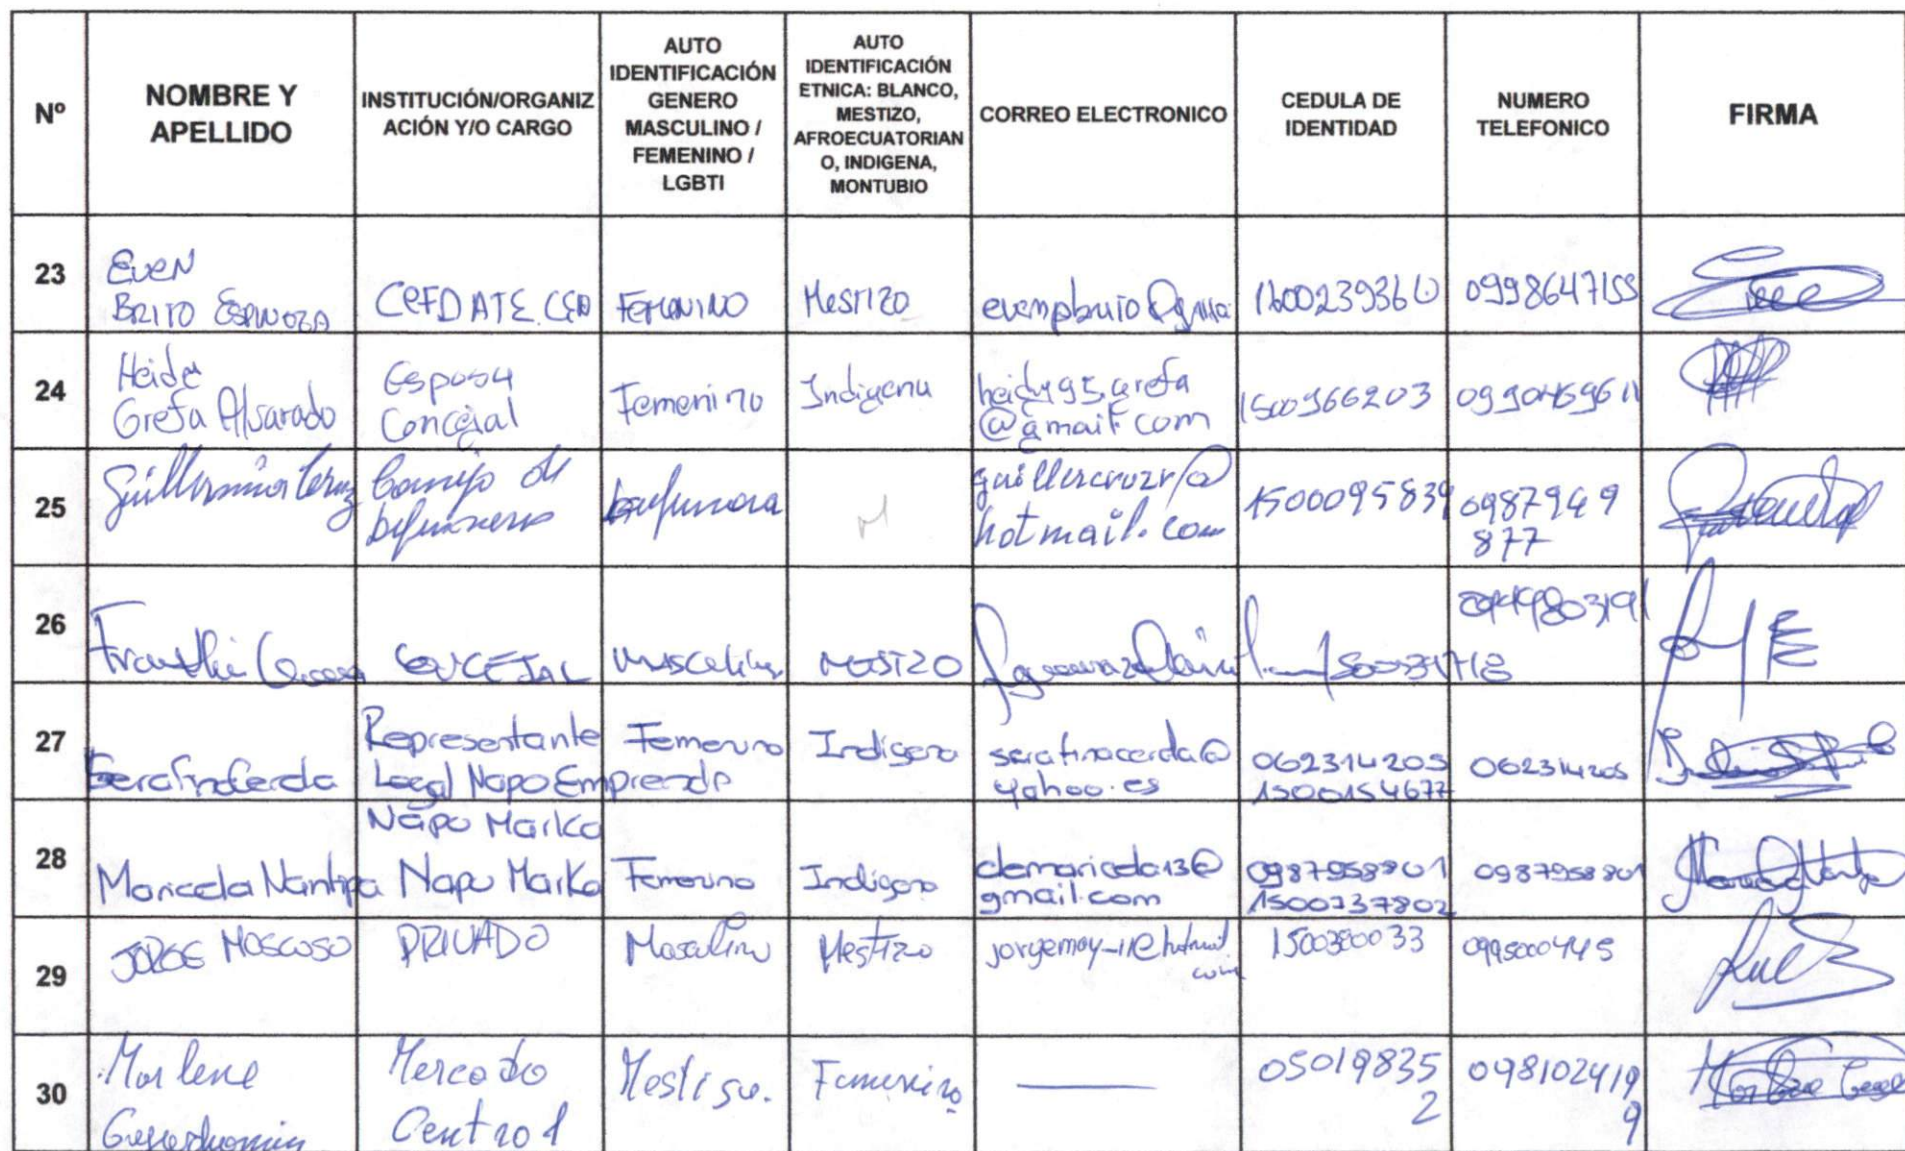 Nº
NOMBRE Y
APELLIDO
INSTITUCIÓN/ORGANIZ
ACIÓN Y/O CARGO
AUTO
IDENTIFICACIÓN
GENERO
MASCULINO /
FEMENINO /
LGBTI
AUTO
IDENTIFICACIÓN
ETNICA: BLANCO,
MESTIZO,
AFROECUATORIAN
O, INDIGENA,
MONTUBIO
CORREO ELECTRONICO
CEDULA DE
IDENTIDAD
NUMERO
TELEFONICO
FIRMA
23
EVEN
BRITO ESPINOZA
FEMENINO
Mestizo
0998647155
24
Heidy
Grefa Alvarado
Esposa
Concejal
Femenino
Indigena
heidy95.grefa
@gmail com
1500966203
25
Guillermina Cruz
guillercruzr@
hotmail.com
1500095839
0987949
877
26
CONCEJAL
Masculino
MESTIZO
27
Serafina Cerda
Representante
Legal Napo Emprende
Femenino
Indigena
serafinacerda@
yahoo.es
062314205
1500154677
062314205
28
Napo Marka
Maricela Nantipa
Napo Marka
Femenino
Indigena
demaricela13@
gmail.com
0987958801
1500737802
0987958801
29
JORGE MOSCOSO
PRIVADO
Masculino
Mestizo
1500300033
0995000445
30
Marlene
Mercado
Central
Mestiso.
Femenino
05019835
2
098102419
9